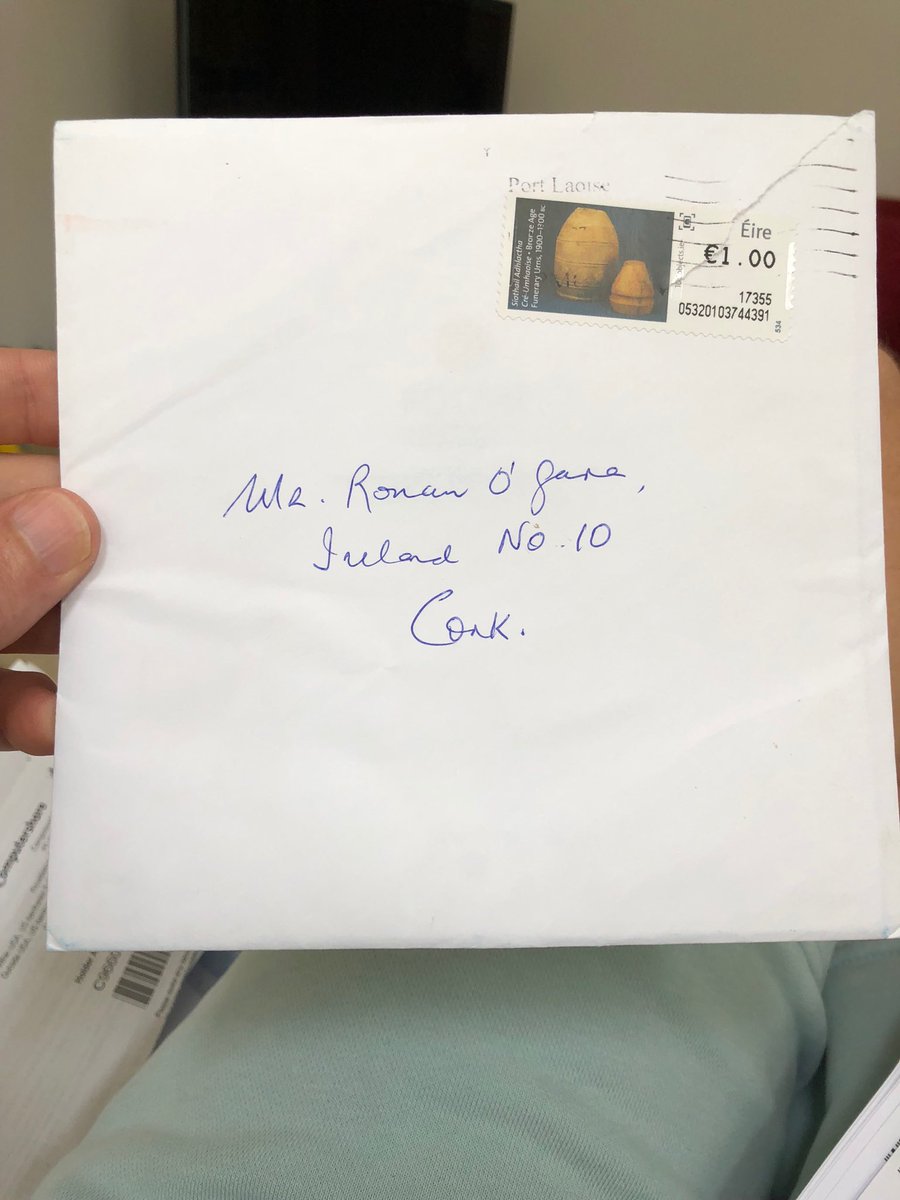 Port Laoise
Siothail Adhlactha
Cré-Umhaoise • Bronze Age
Funerary Urns, 1900–1300 BC
Éire
€1.00
17355
05320103744391
534
Mr. Ronan O'Gara,
Ireland No. 10
Cork.
Computershare